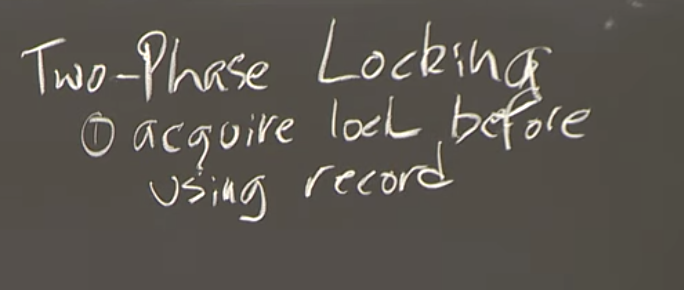 Two-Phase Locking
① acquire lock before
using record